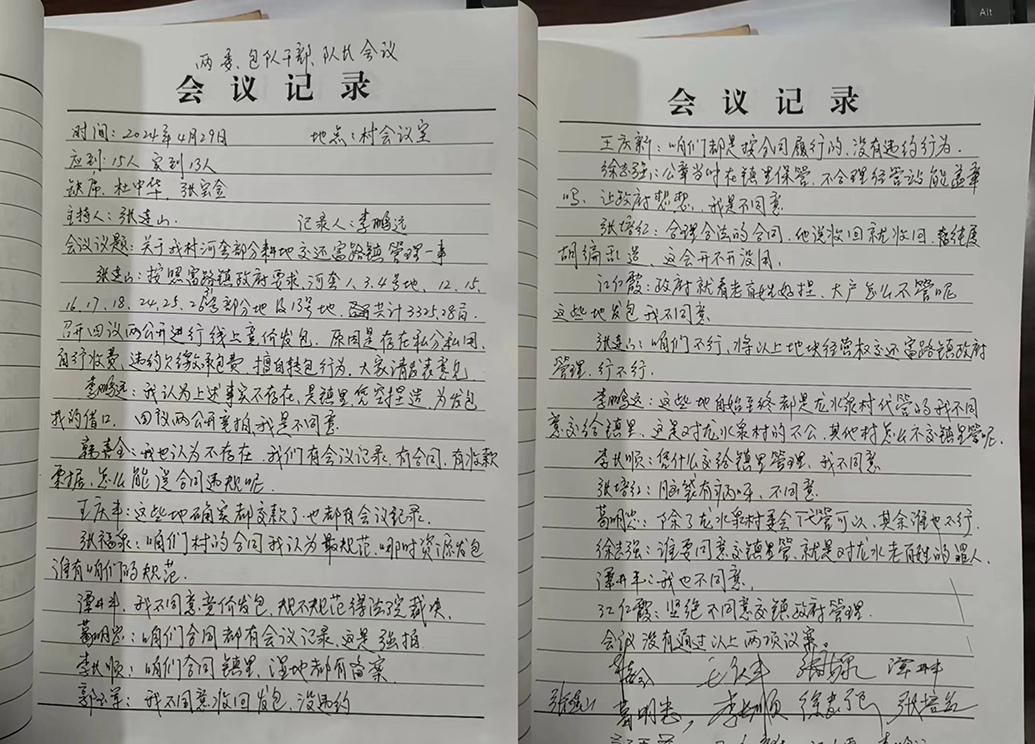 两委、包队干部、队长会议
会议记录
时间：2024年4月29日 地点：村会议室
应到：15人 实到13人
缺席：杜中华、张宝金
主持人：张连山. 记录人：李鹏远
会议议题：关于我村河套部分耕地交还富路镇管理一事
张连山：按照富路镇政府要求，河套1.3.4号地、12.15.
16.17.18.24.25.26号部分地及13号地.共计3325.28亩.
召开四议两公开进行线上竞价发包.原因是存在私分私用、
自行收费、违约欠缴承包费、擅自转包行为，大家请发表意见
李鹏远：我认为上述事实不存在，是镇里凭空捏造，为发包
找的借口.四议两公开竞拍，我是不同意.
韩喜全：我也认为不存在，我们有会议记录，有合同，有收款
票据，怎么能说合同违规呢.
王庆丰：这些地确实都交款了，也都有会议纪录.
张福泉：咱们村的合同我认为最规范，哪时资源发包
谁有咱们的规范.
谭井丰：我不同意竞价发包，规不规范得法院裁决.
葛明忠：咱们合同都有会议记录，这是强拍
李长顺：咱们合同镇里，湿地都有备案
郭玉军：我不同意收回发包，没违约
Alt
会议记录
王庆新：咱们都是按合同履行的，没有违约行为.
徐志强：公章当时在镇里保管，不合理经管站能盖章
吗，让政府想想，我是不同意
张培红：合理合法的合同，他说收回就收回，都纯属
胡编乱造，这会开不开没用.
江红霞：政府就看老百姓好捏，大户怎么不管呢
这些地发包我不同意
张连山：咱们不行，将以上地块经营权交还富路镇政府
管理.行不行.
李鹏远：这些地自始至终都是龙水泉村代管的我不同
意交给镇里，这是对龙水泉村的不公，其他村怎么不交镇里管呢.
李长顺：凭什么交给镇里管理，我不同意
张培红：脑袋有病呀，不同意.
葛明忠：除了龙水泉村委会代管可以，其余谁也不行.
徐志强：谁要同意交镇里管，就是对龙水老百姓的罪人.
谭井丰：我也不同意.
江红霞：坚绝不同意交镇政府管理.
会议没有通过以上两项议案。
王庆丰 张福泉 谭井丰
张连山 葛明忠 李长顺 徐志强 张培红